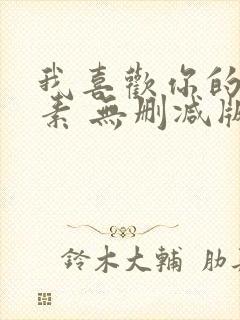 我喜歡你的
素 無刪減版
鈴木大輔 肋